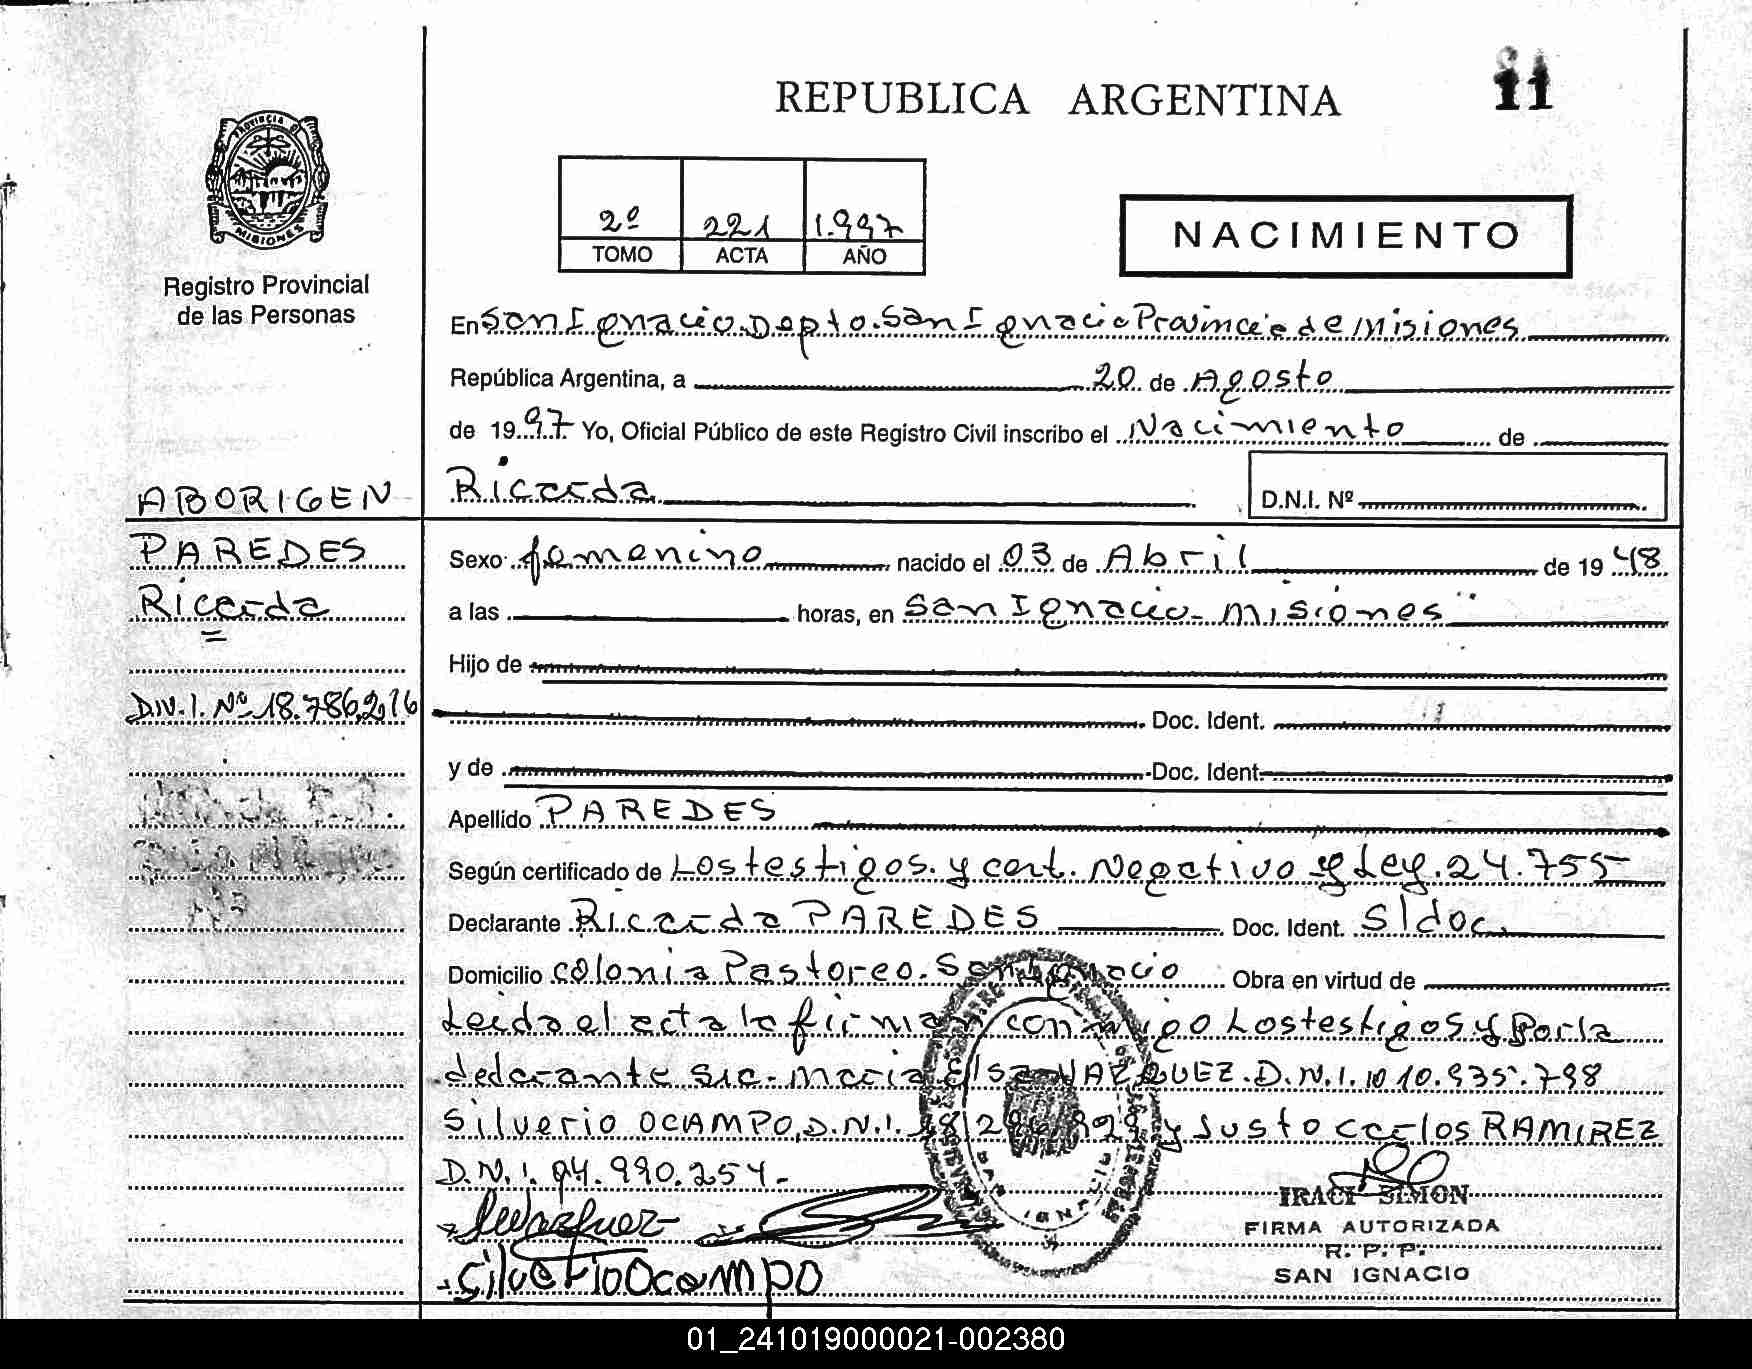 REPUBLICA ARGENTINA
11
PROVINCIA DE
MISIONES
Registro Provincial
de las Personas
2º 221 1.997
TOMO ACTA AÑO
NACIMIENTO
En San Ignacio. Depto. San Ignacio Provincia de Misiones
República Argentina, a 20 de Agosto
de 1997 Yo, Oficial Público de este Registro Civil inscribo el Nacimiento de
Ricarda
D.N.I. Nº
ABORIGEN
PAREDES
Ricarda
D.N.I. Nº 18.786.216
Sexo femenino nacido el 03 de Abril de 1948
a las horas, en San Ignacio - Misiones
Hijo de
Doc. Ident.
y de Doc. Ident.
Apellido PAREDES
Según certificado de Los testigos. y cert. Negativo y Ley. 24.755
Declarante Ricarda PAREDES Doc. Ident. S/doc.
Domicilio colonia Pastoreo. San Ignacio Obra en virtud de
Leida el acta la firman conmigo Los testigos y Por la
declarante Sra. Maria Elsa VAZQUEZ. D.N.I. 10.935.798
Silverio OCAMPO, D.N.I. y Justo Carlos RAMIREZ
D.N.I. 94.990.254.-
SAN IGNACIO
IRACI SIMON
FIRMA AUTORIZADA
R. P. P.
SAN IGNACIO
Silverio Ocampo
01_241019000021-002380